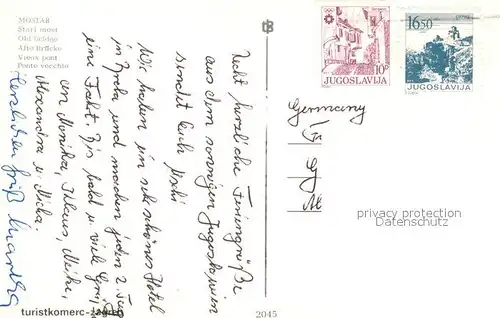 MOSTAR
Stari most
Old bridge
Alte Brücke
Vieux pont
Ponte vecchio
Recht herzliche Feriengrüße
aus dem sonnigen Jugoslawien
sendet Euch Uschi
Wir haben ein sehr schönes Hotel
in und machen jeden 2. Tag
eine Fahrt. Bis bald u. viele Grüße
an Monika, Klaus, Heike,
Alexandra u. Mike.
Herzlichen Gruß Martha
JUGOSLAVIJA 10
16.50
JUGOSLAVIJA
Germany
F
G
privacy protection
Datenschutz
turistkomerc-zagreb
2045